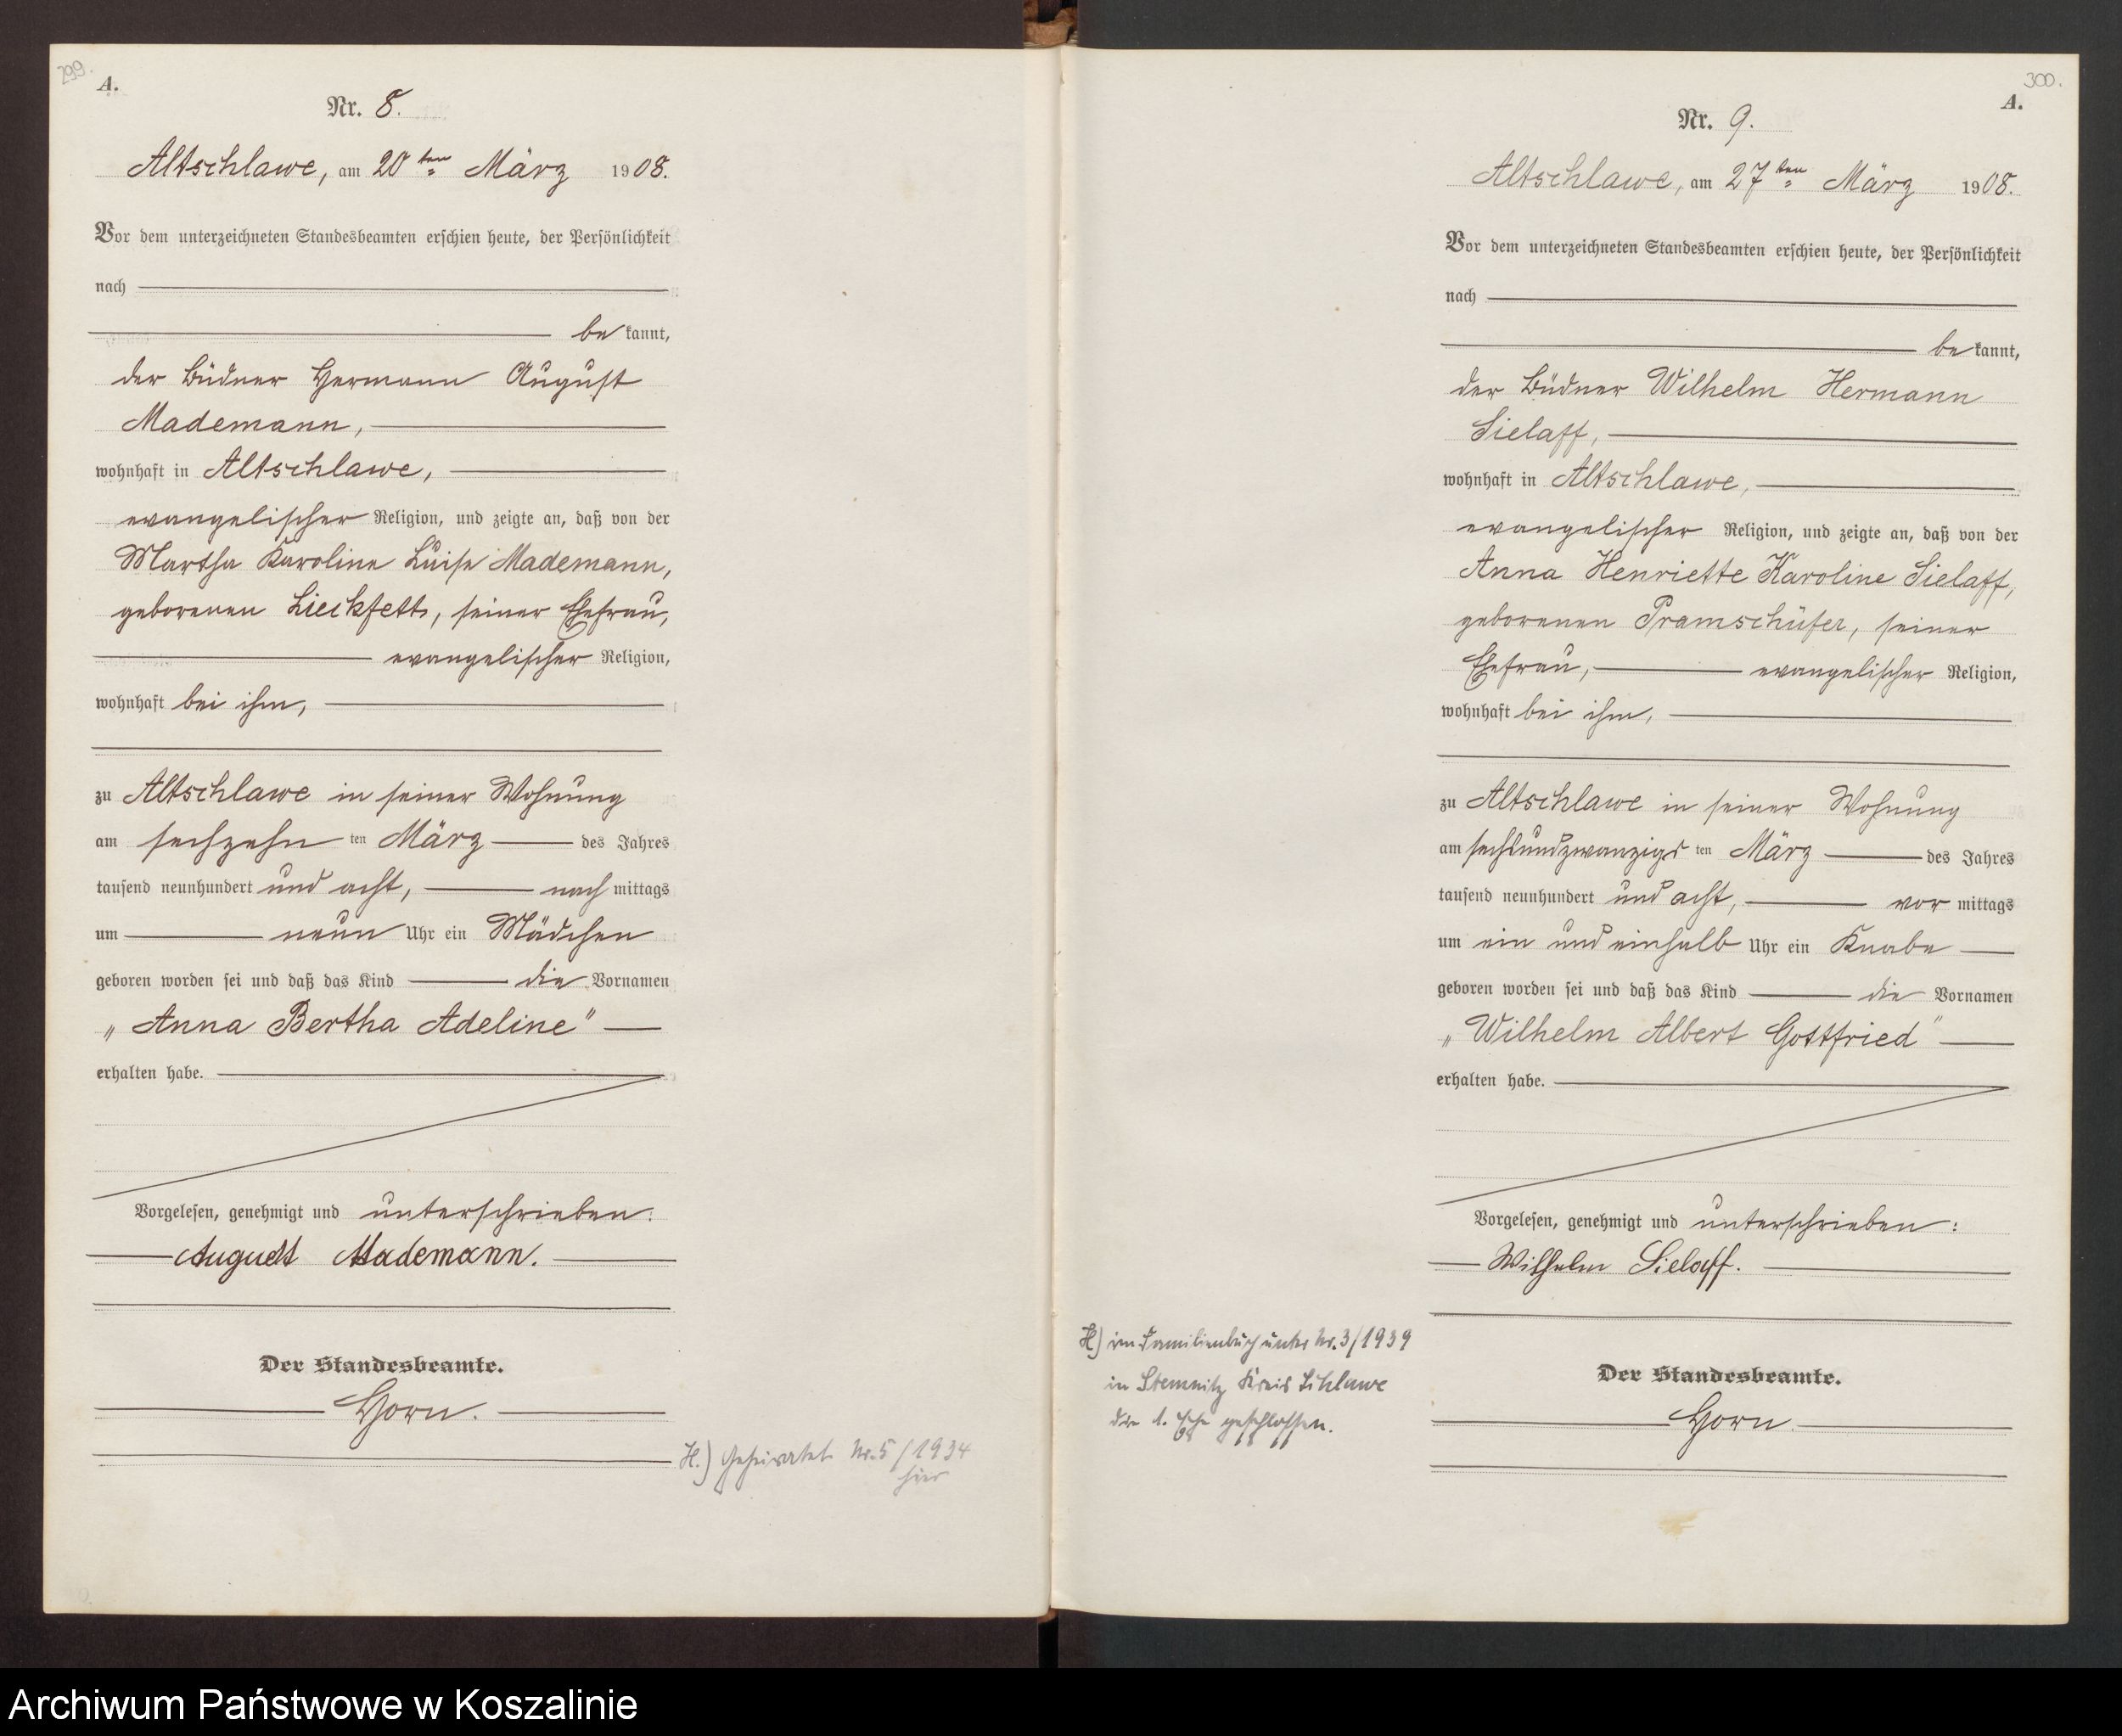 299.
A.
Nr. 8.
Altschlawe, am 20ten März 1908.
Vor dem unterzeichneten Standesbeamten erschien heute, der Persönlichkeit
nach
be kannt,
der Büdner Hermann August
Mademann,
wohnhaft in Altschlawe,
evangelischer Religion, und zeigte an, daß von der
Martha Karoline Luise Mademann,
geborenen Lieckfett, seiner Ehefrau,
evangelischer Religion,
wohnhaft bei ihm,
zu Altschlawe in seiner Wohnung
am sechzehn ten März des Jahres
tausend neunhundert und acht, nach mittags
um neun Uhr ein Mädchen
geboren worden sei und daß das Kind die Vornamen
„Anna Bertha Adeline"
erhalten habe.
Vorgelesen, genehmigt und unterschrieben:
August Mademann.
Der Standesbeamte.
Horn.
H.) Geheiratet Nr. 5/1934
hier
300.
A.
Nr. 9.
Altschlawe, am 27ten März 1908.
Vor dem unterzeichneten Standesbeamten erschien heute, der Persönlichkeit
nach
be kannt,
der Büdner Wilhelm Hermann
Sielaff,
wohnhaft in Altschlawe,
evangelischer Religion, und zeigte an, daß von der
Anna Henriette Karoline Sielaff,
geborenen Pramschüfer, seiner
Ehefrau, evangelischer Religion,
wohnhaft bei ihm,
zu Altschlawe in seiner Wohnung
am sechsundzwanzigs ten März des Jahres
tausend neunhundert und acht, vor mittags
um ein und einhalb Uhr ein Knabe
geboren worden sei und daß das Kind die Vornamen
„Wilhelm Albert Gottfried"
erhalten habe.
Vorgelesen, genehmigt und unterschrieben:
Wilhelm Sielaff.
H) im Familienbuch unter Nr. 3/1939
in Stemnitz Kreis Schlawe
die 1. Ehe geschlossen.
Der Standesbeamte.
Horn.
Archiwum Państwowe w Koszalinie